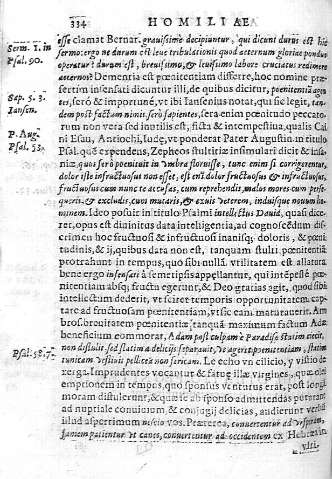 334
HOMILIAE
esse clamat Bernar. grauissime decipiuntur, qui dicunt durus est hic
Serm. 1. in
sermo: ergo ne durum est leue tribulationis quod aeternum gloriae pondus
Psal. 90.
operatur? durum est, breuissimo, & leuissimo labore cruciatus redimere
aeternos? Dementia est poenitentiam differre, hoc nomine prae-
sertim insensati dicuntur illi, de quibus dicitur, poenitentia agen-
Sap. 5. 3.
tes, seró & importunè, vt ibi Iansenius notat, qui sic legit, tan-
Iansen.
dem post factum nimis serò sapientes, sera enim poenitudo peccato-
rum non vera sed inutilis est, ficta & intempestiua, qualis Cai-
ni Esau, Antiochi, Iudae, vt ponderat Pater Augustin. in titulo
P. Aug.
Psal. 53.
Psal. quē expendens, Zepheos stultitiae insimulari dicit & insa-
niae, quos serò poenituit in vmbra floruisse, tunc enim si corrigerentur,
dolor iste infructuosus non esset, est enim dolor fructuosus & infructuosus,
fructuosus cum nunc te accusas, cum reprehendis malos mores cum perse-
queris, & excludis, cum mutaris, & exuis veterem, induisque nouum ho-
minem. Ideo posuit in titulo Psalmi intellectus Dauid, quasi dice-
ret, opus est diuinitus data intelligentia, ad cognoscendum dis-
crimen hoc fructuosi & infructuosi inanisq; doloris, & poeni-
tudinis, & ij, quibus data non est, tanquam stulti poenitentiā
protrahunt in tempus, quo sibi nulla vtilitatem est allatura
bene ergo insensati à semetipsis appellantur, qui intēpestē poe-
nitentiam absq; fructu egerunt, & Deo gratias agit, quod sibi
intellectum dederit, vt sciret temporis opportunitatem cap-
tare ad fructuosam poenitentiam, vt sic eam maturaret. Am-
bros. breuitatem poenitentiae, tanquā maximum factum Adae
beneficium commorat, Adam post culpam à Paradiso statim eiecit,
Psal. 38. 7.
non distulit, sed statim à delicijs separauit, vt ageret poenitentiam, statim
tunicam vestiuit pellicea non sericam. Lectò ergo vti cilicio, y vistió de
xerga. Imprudentes vocantur & fatuae illae virgines, quae olei
emptionem in tempus, quo sponsus venturus erat, post longā
moram distulerunt, & quae se ab sponso admittendas putarant
ad nuptiale conuiuium, & coniugij delicias, audierunt verbū
illud asperrimum nescio vos. Praeterea, conuertentur ad vesperam,
famem patientur vt canes, conuertentur ad occidentem ex Hebraeo in
VIII.